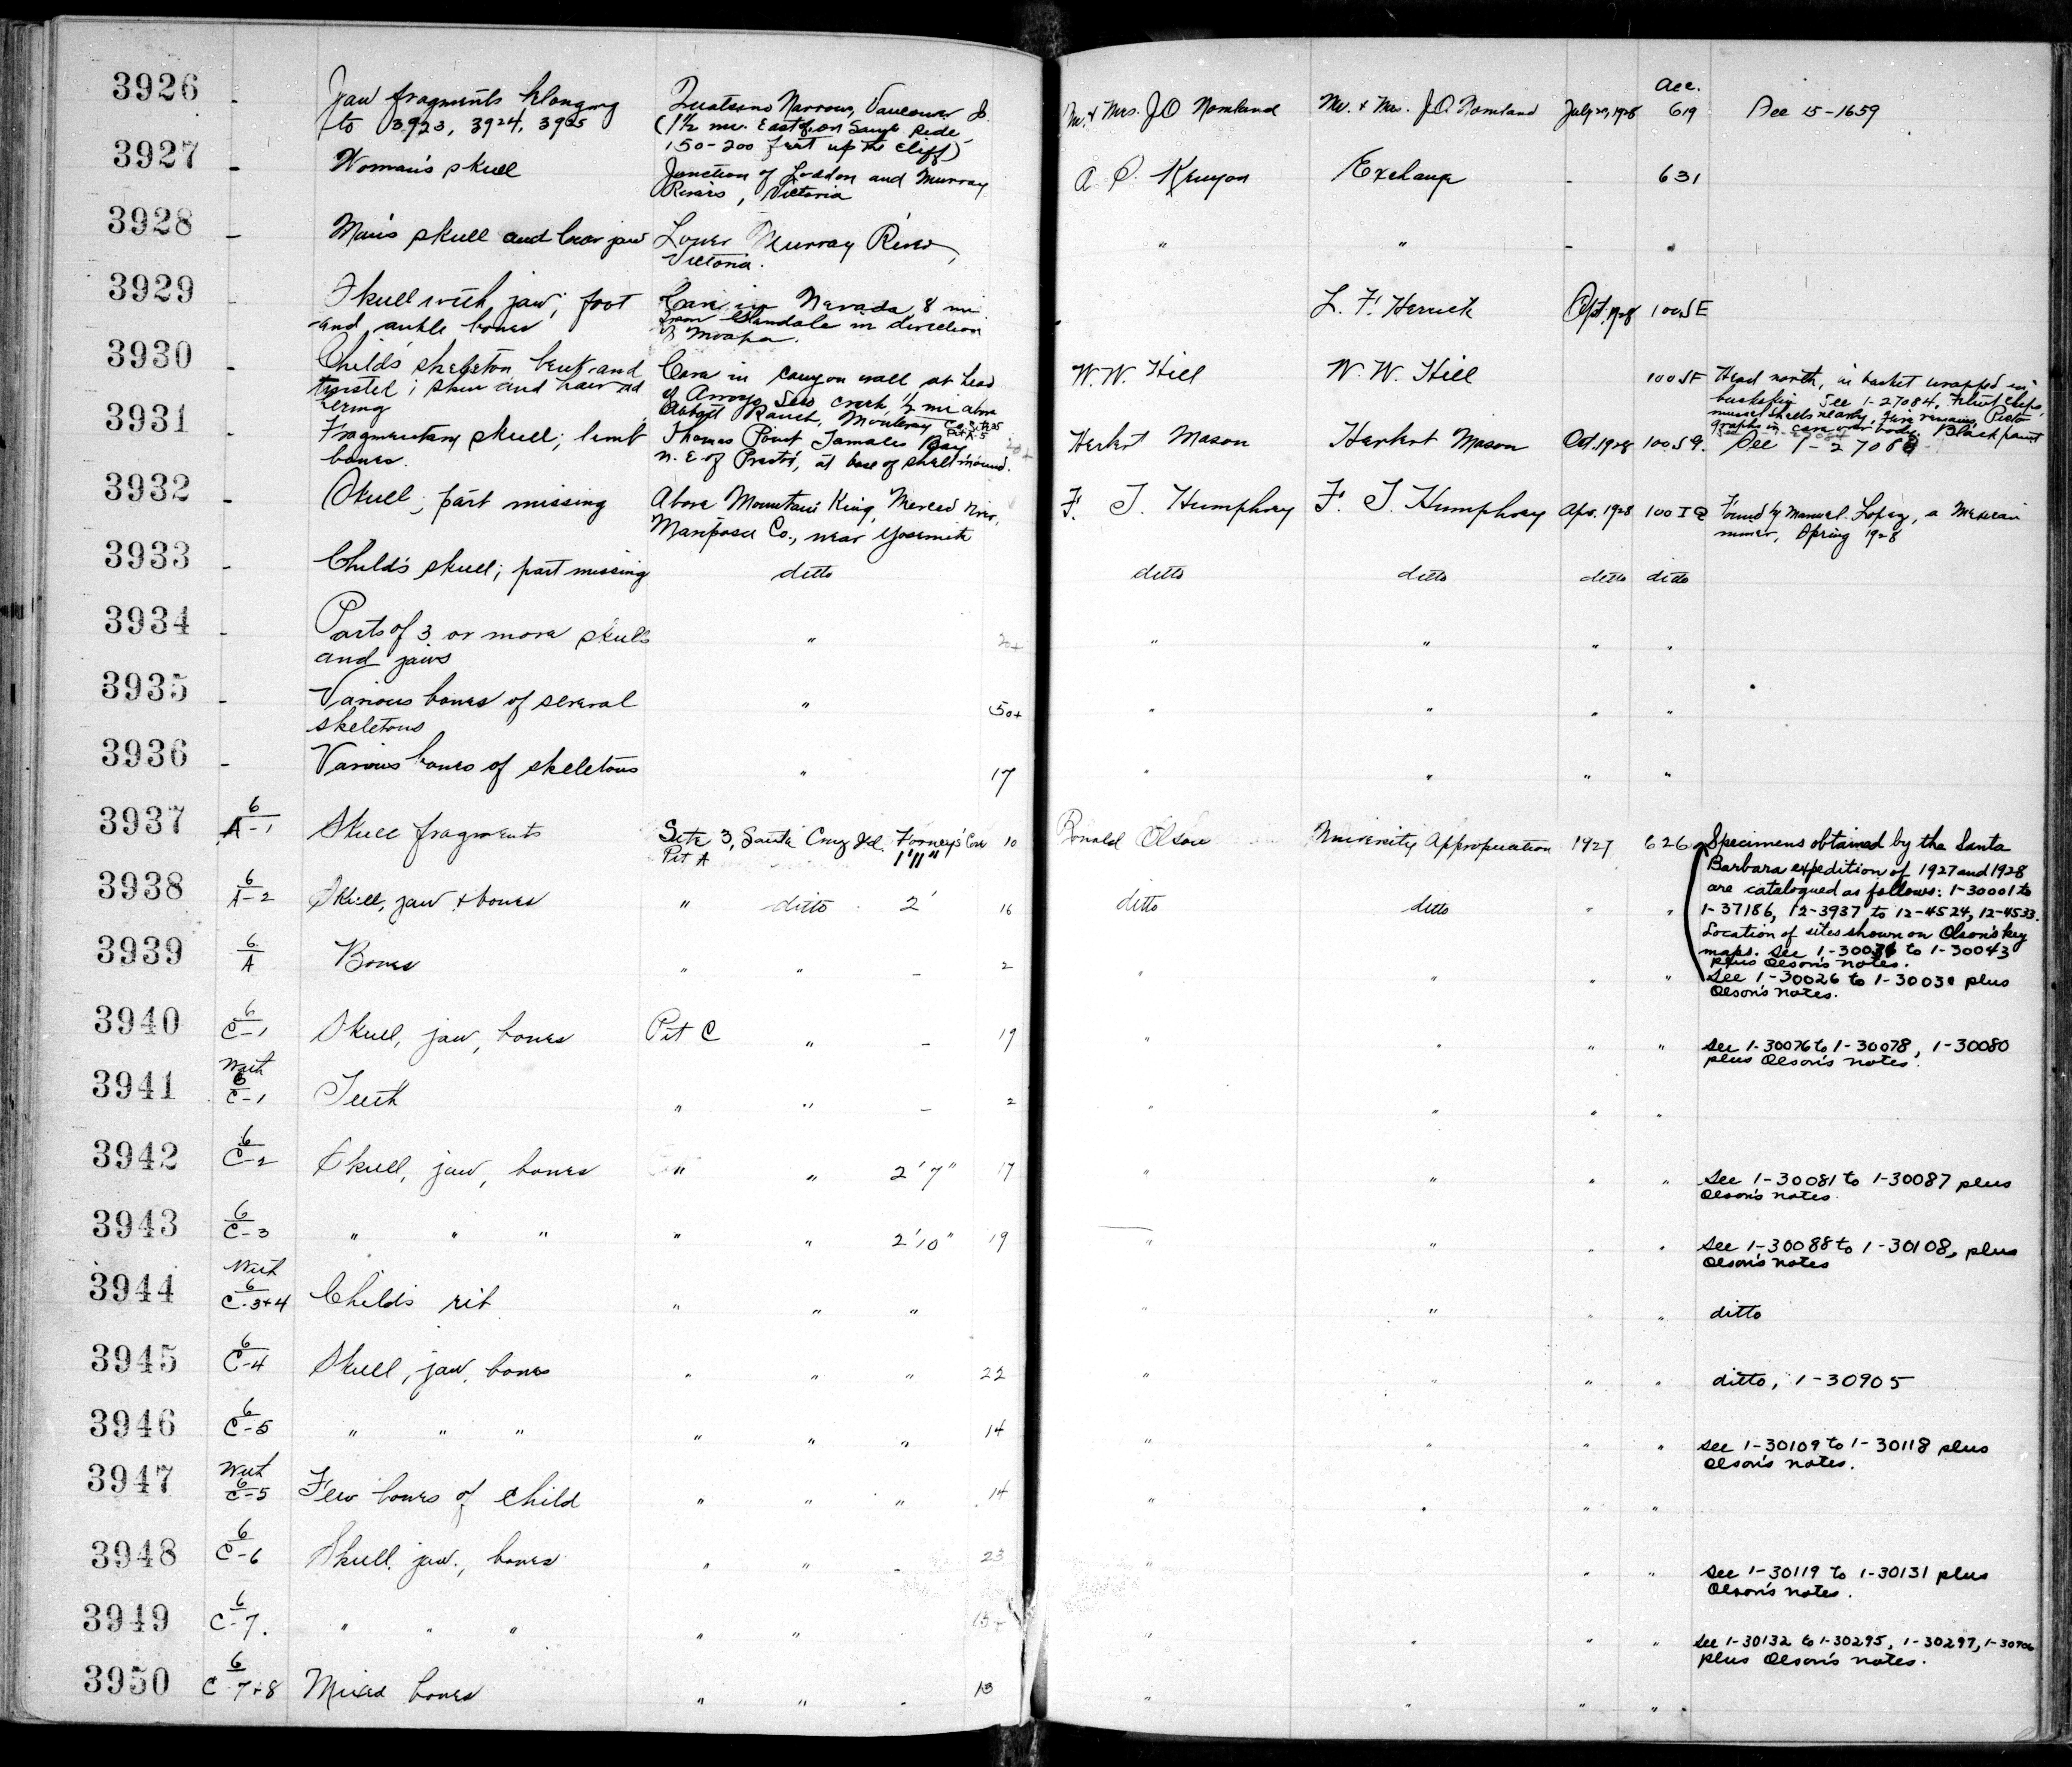 Acc.
3926 - Jaw fragments belonging Quatsino Narrows, Vancouver Is. Mr. & Mrs. J.O. Nomland Mr. & Mrs. J.O. Nomland July 29, 1928 619 See 15-1659
to 3923, 3924, 3925 (1½ mi. East of, on same side,
150-200 feet up the cliff)
3927 - Woman's skull Junction of Loddon and Murray A S. Kenyon Exchange - 631
Rivers, Victoria
3928 - Man's skull and lower jaw Lower Murray River, " " - "
Victoria.
3929 - Skull with jaw; foot Cave in Nevada, 8 mi. L. F. Herrick Oct. 1928 100SE
and ankle bones from Glendale in direction
of Moapa.
3930 - Child's skeleton, bent and Cave in canyon wall at head W.W. Hill W. W. Hill 100SF Head north, in basket wrapped in
twisted; skin and hair ad of Arroyo Seco creek, ½ mi above basketry. See 1-27084. Flint chips,
hering Abbott Ranch, Monterey Co. mussel shells nearby. Fire remains. Picto
graphs in cave over body. Black paint
3931 - Fragmentary skull; limb Thomas Point Tomales Bay Herbert Mason Herbert Mason Oct. 1928 100SG. See 1-27088
bones. N.E. of Preston, at base of shellmound.
3932 - Skull; part missing Above Mountain King, Merced River, F. T. Humphrey F. T. Humphrey Apr. 1928 100IQ Found by Manuel Lopez, a Mexican
Mariposa Co., near Yosemite miner, Spring 1928
3933 - Child's skull; part missing ditto ditto ditto ditto ditto
3934 - Parts of 3 or more skulls " 20+ " " " "
and jaws
3935 - Various bones of several " 50+ " " " "
skeletons
3936 - Various bones of skeletons " 17 " " " "
3937 6/A-1 Skull fragments Site 3, Santa Cruz Isl. Forney's Cove 10 Ronald Olson University Appropriation 1927 626 Specimens obtained by the Santa
Pit A 1'11" Barbara expedition of 1927 and 1928
are catalogued as follows: 1-30001 to
3938 6/A-2 Skull, jaw & bones " ditto 2' 16 ditto ditto " " 1-37186, 12-3937 to 12-4524, 12-4533.
Location of sites shown on Olson's key
3939 6/A Bones " " - 2 " " " " maps. See 1-30036 to 1-30043
plus Olson's notes.
See 1-30026 to 1-30030 plus
Olson's notes.
3940 6/C-1 Skull, jaw, bones Pit C " - 19 " " " " See 1-30076 to 1-30078, 1-30080
plus Olson's notes.
3941 With 6/C-1 Teeth " " - 2 " " " "
3942 6/C-2 Skull, jaw, bones " " 2'7" 17 " " " " See 1-30081 to 1-30087 plus
Olson's notes.
3943 6/C-3 " " " " " 2'10" 19 " " " " See 1-30088 to 1-30108, plus
Olson's notes
3944 With 6/C-3+4 Child's rib " " " " " " " ditto
3945 6/C-4 Skull, jaw, bones " " " 22 " " " " ditto, 1-30905
3946 6/C-5 " " " " " " 14 " " " " See 1-30109 to 1-30118 plus
Olson's notes.
3947 With 6/C-5 Few bones of child " " " 14 " " " "
3948 6/C-6 Skull, jaw, bones " " - 23 " " " See 1-30119 to 1-30131 plus
Olson's notes.
3949 6/C-7. " " " " " 15+ " " " " See 1-30132 to 1-30295, 1-30297, 1-30906
plus Olson's notes.
3950 6/C 7+8 Mixed bones " " - 13 " " " "